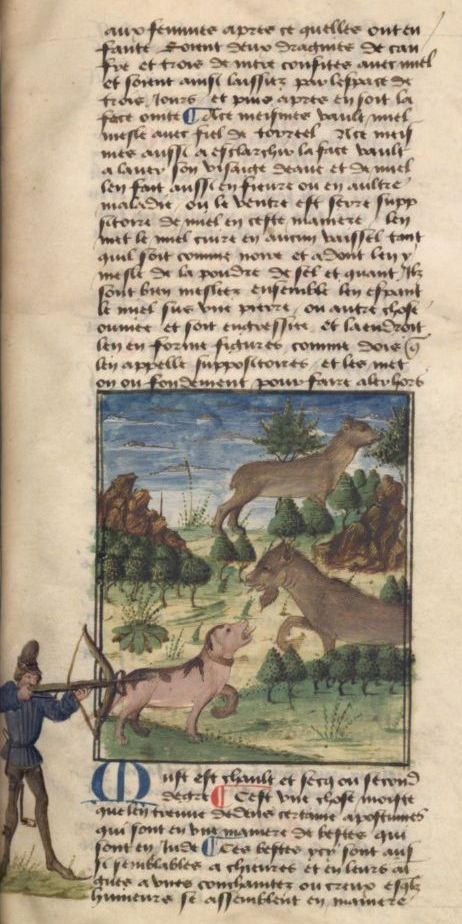 aux femmes apres ce quelles ont en
fante Soient deux dragmes de can
fre et trois de mirre confites avec miel
et soient ainsi laissiez par lespace de
trois Jours et puis apres en soit la
face ointe A ce meismes vault miel
mesle avec fiel de torreel A ce meis
mes aussi a esclarchir la face vault
a laver son visaige deaue et de miel
len fait aussi en fievre ou en aultre
maladie ou le ventre est serre supp
sitoire de miel en ceste maniere len
met le miel cuire en aucun vaissel tant
quil soit comme noir et adont len y
mesle de la pouldre de sel et quant Ilz
sont bien meslez ensemble len espant
le miel sur une pierre ou autre chose
et soit engressire et la endroit
len en forme figures comme dois q
len appelle suppositoires et les met
on ou fondement pour faire aler hors
Must est chault et secq ou second
degre Cest une chose moiste
que len treuve dedens certaine apostumes
qui sont en une maniere de bestes qui
sont en Inde Ces bestes ycy sont aus
si semblables a chievres et en leurs ai
gnes a unes concavitez ou creux esqlz
humeurs se assemblent en maniere